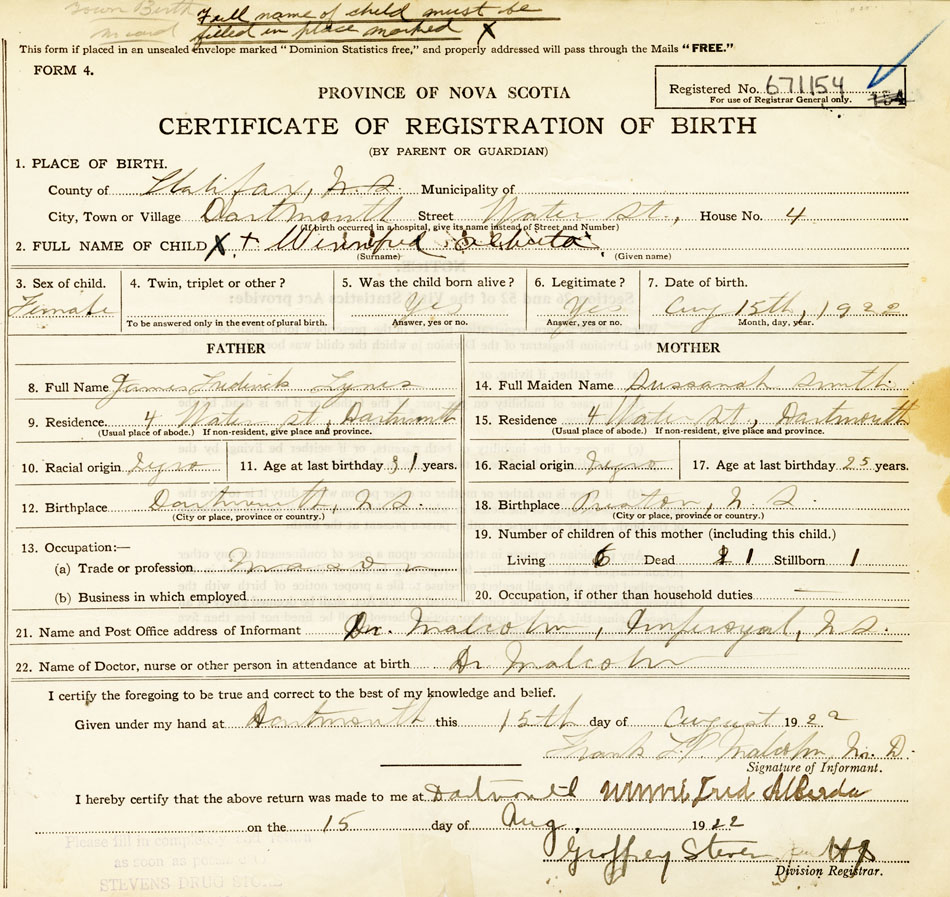 Town Birth Full name of child must be
filled in place marked X
This form if placed in an unsealed envelope marked "Dominion Statistics free," and properly addressed will pass through the Mails "FREE."
FORM 4.
Registered No. 671154
For use of Registrar General only. 154
PROVINCE OF NOVA SCOTIA
CERTIFICATE OF REGISTRATION OF BIRTH
(BY PARENT OR GUARDIAN)
1. PLACE OF BIRTH.
County of Halifax, N.S. Municipality of
City, Town or Village Dartmouth Street Water St., House No. 4
(If birth occurred in a hospital, give its name instead of Street and Number)
2. FULL NAME OF CHILD X + Winnifred
(Surname) (Given name)
3. Sex of child. 4. Twin, triplet or other? 5. Was the child born alive? 6. Legitimate? 7. Date of birth.
Female Yes Yes Aug 15th, 1922
To be answered only in the event of plural birth. Answer, yes or no. Answer, yes or no. Month, day, year.
FATHER
8. Full Name James Frederick Lynes
9. Residence. 4 Water St, Dartmouth
(Usual place of abode.) If non-resident, give place and province.
10. Racial origin Negro 11. Age at last birthday 31 years.
12. Birthplace Dartmouth, N.S.
(City or place, province or country.)
13. Occupation:—
(a) Trade or profession Mason
(b) Business in which employed
MOTHER
14. Full Maiden Name Sussanah Smith
15. Residence 4 Water St, Dartmouth
(Usual place of abode.) If non-resident, give place and province.
16. Racial origin Negro 17. Age at last birthday 25 years.
18. Birthplace Preston, N.S.
(City or place, province or country.)
19. Number of children of this mother (including this child.)
Living 6 Dead 1 Stillborn 1
20. Occupation, if other than household duties —
21. Name and Post Office address of Informant Dr. Malcolm, Imperoyal, N.S.
22. Name of Doctor, nurse or other person in attendance at birth Dr Malcolm
I certify the foregoing to be true and correct to the best of my knowledge and belief.
Given under my hand at Dartmouth this 15th day of August 1922
Malcolm, M.D.
Signature of Informant.
I hereby certify that the above return was made to me at Winnifred Alberda
on the 15 day of Aug, 1922
Geoffrey
Division Registrar.
Please fill in completely and return
as soon as possible to
STEVENS DRUG STORE